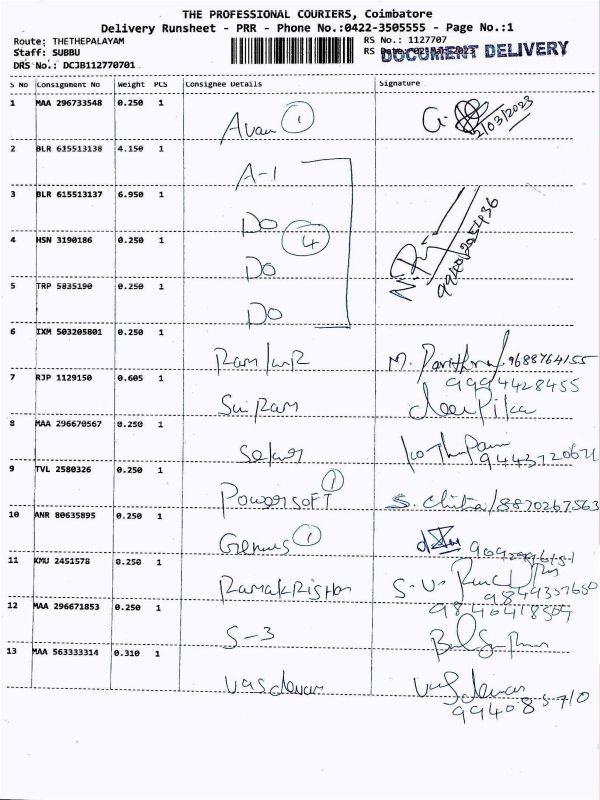 THE PROFESSIONAL COURIERS, Coimbatore
Delivery Runsheet - PRR - Phone No.:0422-3505555 - Page No.:1
Route: THETHEPALAYAM RS No.: 1127707
Staff: SUBBU RS DOCUMENT DELIVERY
DRS No.: DCJB112770701
S No Consignment No Weight PCS Consignee Details Signature
1 MAA 296733548 0.250 1 Avan 1 2/03/2023
2 BLR 615513138 4.150 1 A-1
3 BLR 615513137 6.950 1 Do
4 HSN 3190186 0.250 1 Do 4
5 TRP 5835190 0.250 1 Do
6 IXM 503205801 0.250 1 M. Pavithra/9688764155
7 RJP 1129150 0.605 1 Sui Ram 9994428455
Deepika
8 MAA 296670567 0.250 1 Sekar
9 TVL 2580326 0.250 1 Powersoft 1 S. Chitra/8870267563
10 ANR 80635895 0.250 1 Genius 1
11 KMU 2451578 0.250 1 S.V.
12 MAA 296671853 0.250 1 S-3
13 MAA 563333314 0.310 1 Vasdevan Vasdevan